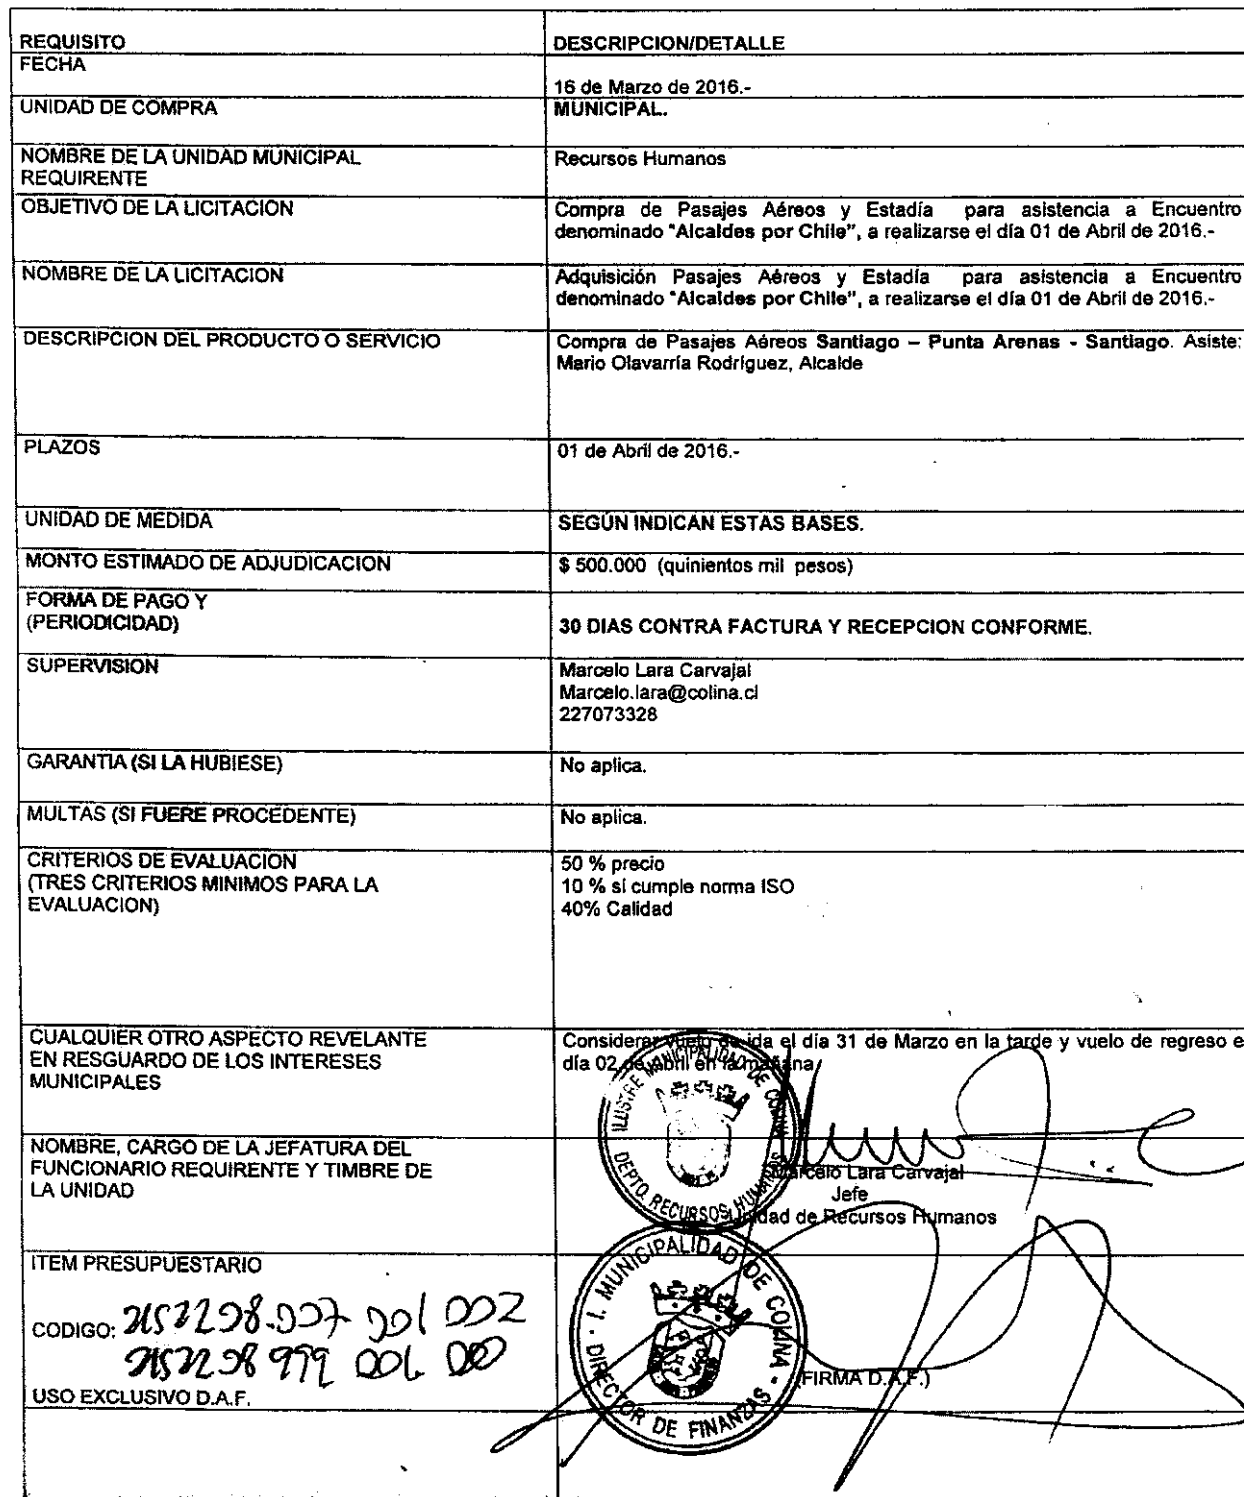 REQUISITO
DESCRIPCION/DETALLE
FECHA
16 de Marzo de 2016.-
UNIDAD DE COMPRA
MUNICIPAL.
NOMBRE DE LA UNIDAD MUNICIPAL
REQUIRENTE
Recursos Humanos
OBJETIVO DE LA LICITACION
Compra de Pasajes Aéreos y Estadía para asistencia a Encuentro
denominado "Alcaldes por Chile", a realizarse el día 01 de Abril de 2016.-
NOMBRE DE LA LICITACION
Adquisición Pasajes Aéreos y Estadía para asistencia a Encuentro
denominado "Alcaldes por Chile", a realizarse el día 01 de Abril de 2016.-
DESCRIPCION DEL PRODUCTO O SERVICIO
Compra de Pasajes Aéreos Santiago – Punta Arenas - Santiago. Asiste:
Mario Olavarría Rodríguez, Alcalde
PLAZOS
01 de Abril de 2016.-
UNIDAD DE MEDIDA
SEGÚN INDICAN ESTAS BASES.
MONTO ESTIMADO DE ADJUDICACION
$ 500.000 (quinientos mil pesos)
FORMA DE PAGO Y
(PERIODICIDAD)
30 DIAS CONTRA FACTURA Y RECEPCION CONFORME.
SUPERVISION
Marcelo Lara Carvajal
Marcelo.lara@colina.cl
227073328
GARANTIA (SI LA HUBIESE)
No aplica.
MULTAS (SI FUERE PROCEDENTE)
No aplica.
CRITERIOS DE EVALUACION
(TRES CRITERIOS MINIMOS PARA LA
EVALUACION)
50 % precio
10 % si cumple norma ISO
40% Calidad
CUALQUIER OTRO ASPECTO REVELANTE
EN RESGUARDO DE LOS INTERESES
MUNICIPALES
Considerar vuelo de ida el día 31 de Marzo en la tarde y vuelo de regreso e
día 02 de abril en la mañana
ILUSTRE MUNICIPALIDAD DE COLINA
DEPTO. RECURSOS HUMANOS
NOMBRE, CARGO DE LA JEFATURA DEL
FUNCIONARIO REQUIRENTE Y TIMBRE DE
LA UNIDAD
Marcelo Lara Carvajal
Jefe
Unidad de Recursos Humanos
ITEM PRESUPUESTARIO
CODIGO:
USO EXCLUSIVO D.A.F.
I. MUNICIPALIDAD DE COLINA
DIRECTOR DE FINANZAS
(FIRMA D.A.F.)